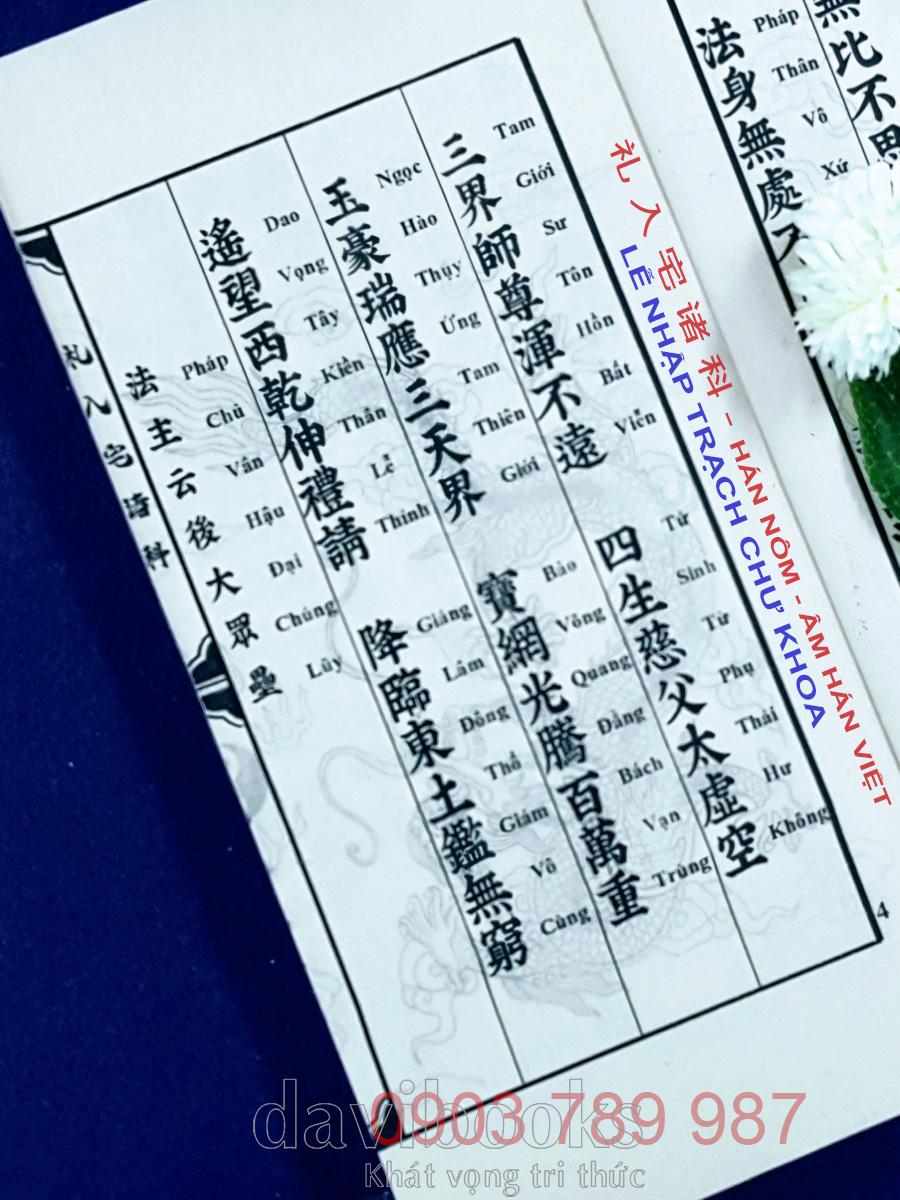 三界師尊渾不遠 四生慈父太虛空
Tam Giới Sư Tôn Hồn Bất Viễn Tứ Sinh Từ Phụ Thái Hư Không
玉豪瑞應三天界 寶網光騰百萬重
Ngọc Hào Thụy Ứng Tam Thiên Giới Bảo Võng Quang Đằng Bách Vạn Trùng
遙望西乾伸禮請 降臨東土鑑無窮
Dao Vọng Tây Kiền Thân Lễ Thỉnh Giáng Lâm Đông Thổ Giám Vô Cùng
法主云後大眾壘
Pháp Chủ Vân Hậu Đại Chúng Lũy
礼入宅诸科
4
法身無處
Pháp Thân Vô Xứ
無比不思
礼入宅诸科 - HÁN NÔM - ÂM HÁN VIỆT
LỄ NHẬP TRẠCH CHƯ KHOA
davibooks
0903 789 987
Khát vọng tri thức